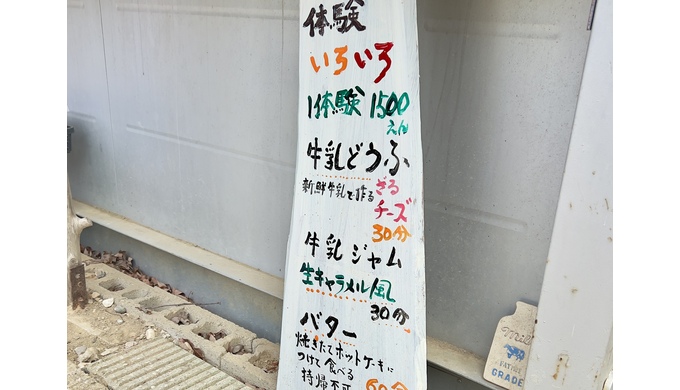 体験
いろいろ
1体験 1500
えん
牛乳どうふ
新鮮牛乳で作る
ざる
チーズ
30分
牛乳ジャム
生キャラメル風
30分
バター
焼きたてホットケーキに
つけて食べる
持帰不可
60分
Mil
NATIVE
GRADE